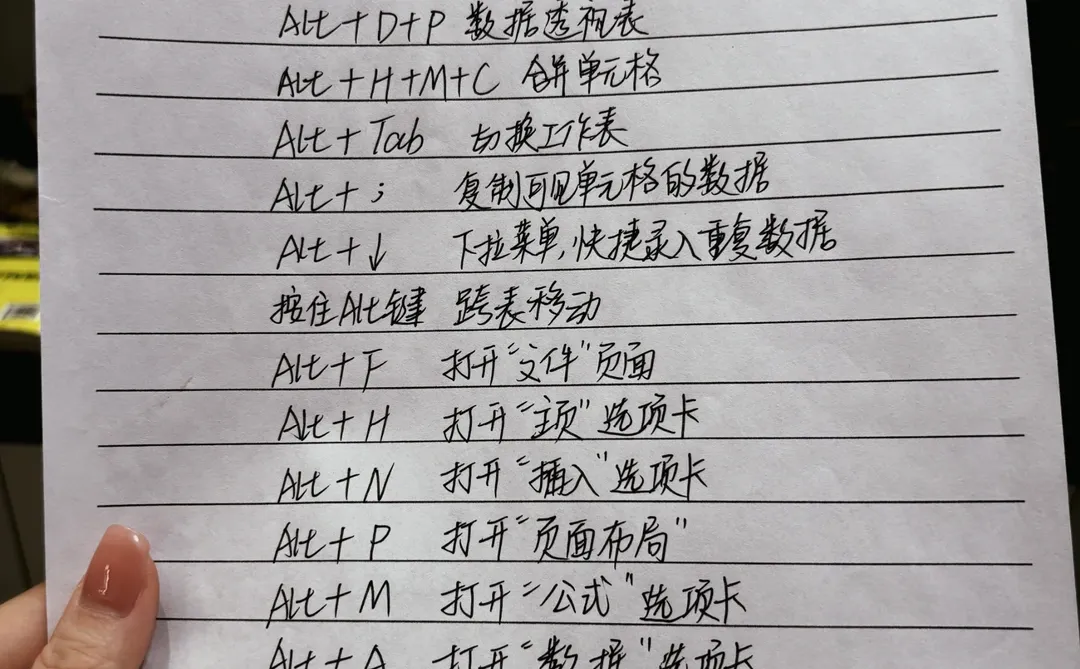 Alt+D+P 数据透视表
Alt+H+M+C 合并单元格
Alt+Tab 切换工作表
Alt+; 复制可见单元格的数据
Alt+↓ 下拉菜单,快捷录入重复数据
按住Alt键 跨表移动
Alt+F 打开“文件”页面
Alt+H 打开“主页”选项卡
Alt+N 打开“插入”选项卡
Alt+P 打开“页面布局”
Alt+M 打开“公式”选项卡
Alt+A 打开“数据”选项卡